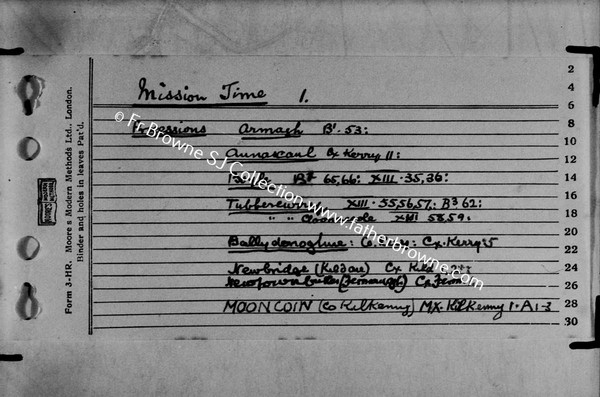 Mission Time 1.
Armagh B'. 53:
Aunascaul Cx Kerry 11:
65,66: XIII. 35,36:
XIII. 55,56,57,: B3 62:
" " XIII 58,59:
Ballydonoghue: Co. Cx. Kerry: 5
Newbridge (Kildare) Cx Kild
Newtownbutler (Fermanagh) Cx. Ferm
MOONCOIN (Co Kilkenny) Mx. Kilkenny 1. A1-3
© Fr Browne SJ Collection. www.fatherbrowne.com
Form 3-HR. Moore's Modern Methods Ltd., London.
Binder and holes in leaves Pat'd.
2
4
6
8
10
12
14
16
18
20
22
24
26
28
30